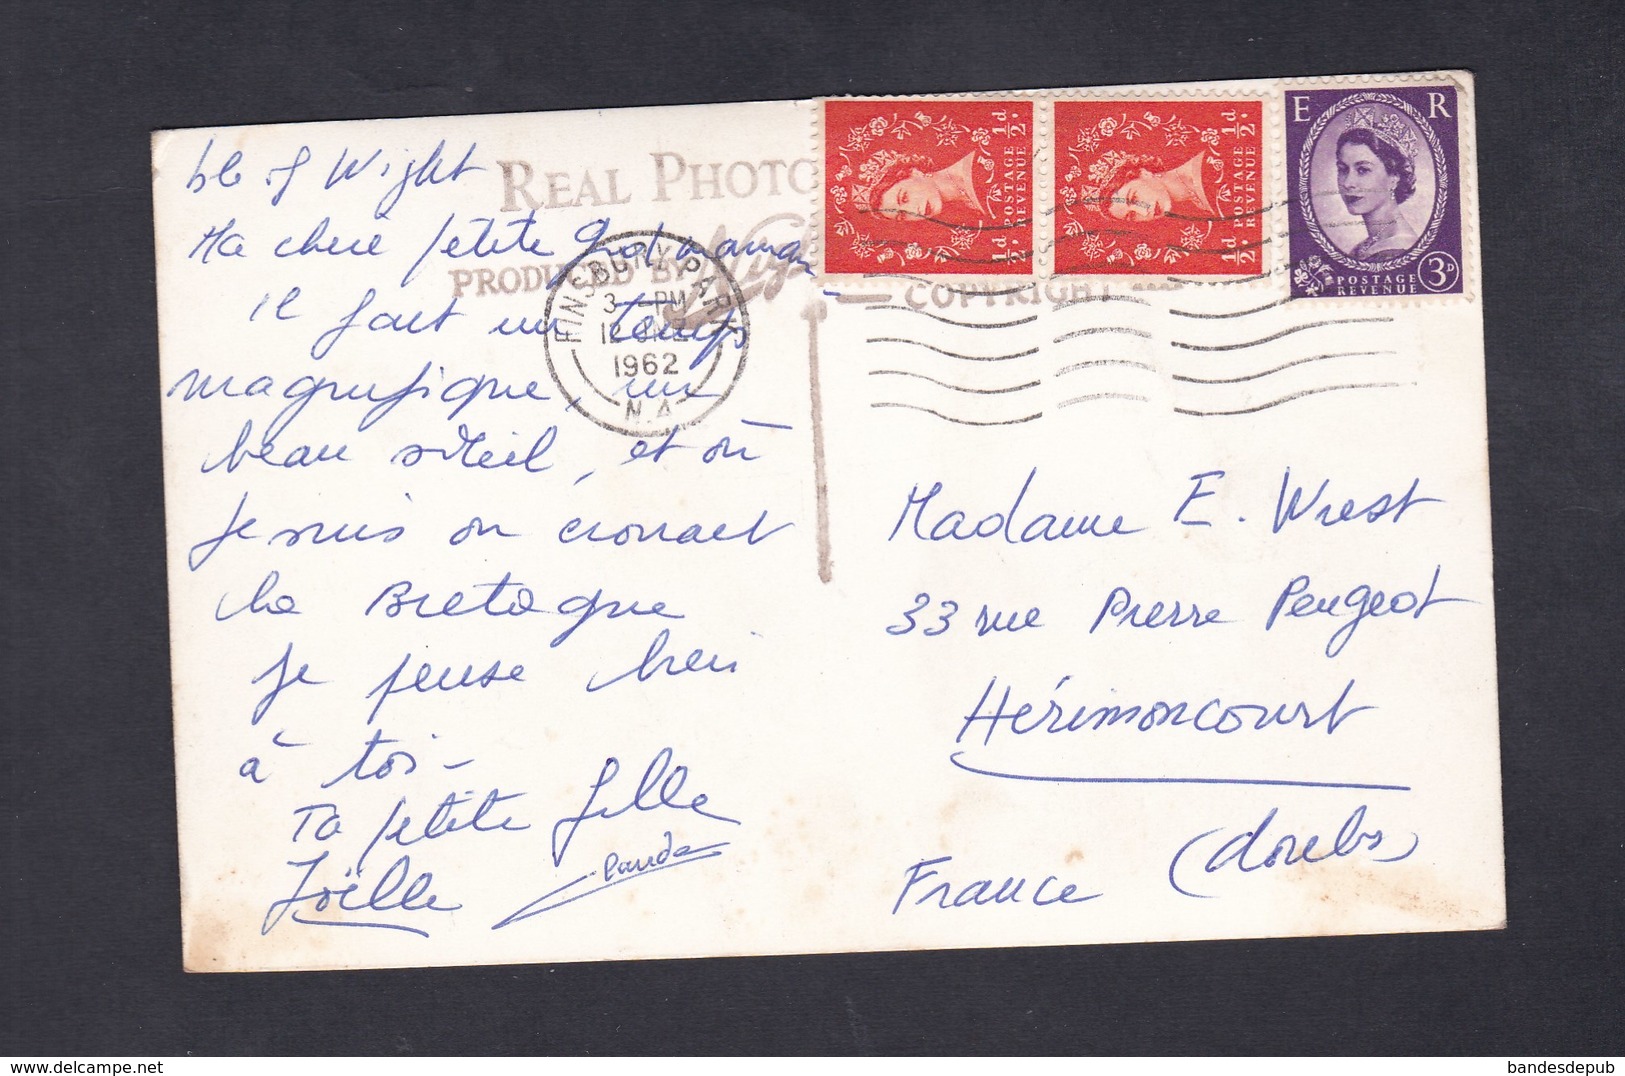 Ile of Wight
Ma chère petite Gd maman
il fait un temps
magnifique, un
beau soleil, et où
Je suis on croirait
la Bretagne
Je pense bien
à toi -
Ta petite fille
Joëlle
REAL PHOTO
PRODUCED BY
COPYRIGHT
FINSBURY PARK
3 - PM
12
1962
N.4
½d
POSTAGE
REVENUE
½d
½d
POSTAGE
REVENUE
½d
E R
POSTAGE
REVENUE
3D
Madame E. Wrest
33 rue Pierre Peugeot
Hérimoncourt
(doubs)
France
bandesdepub